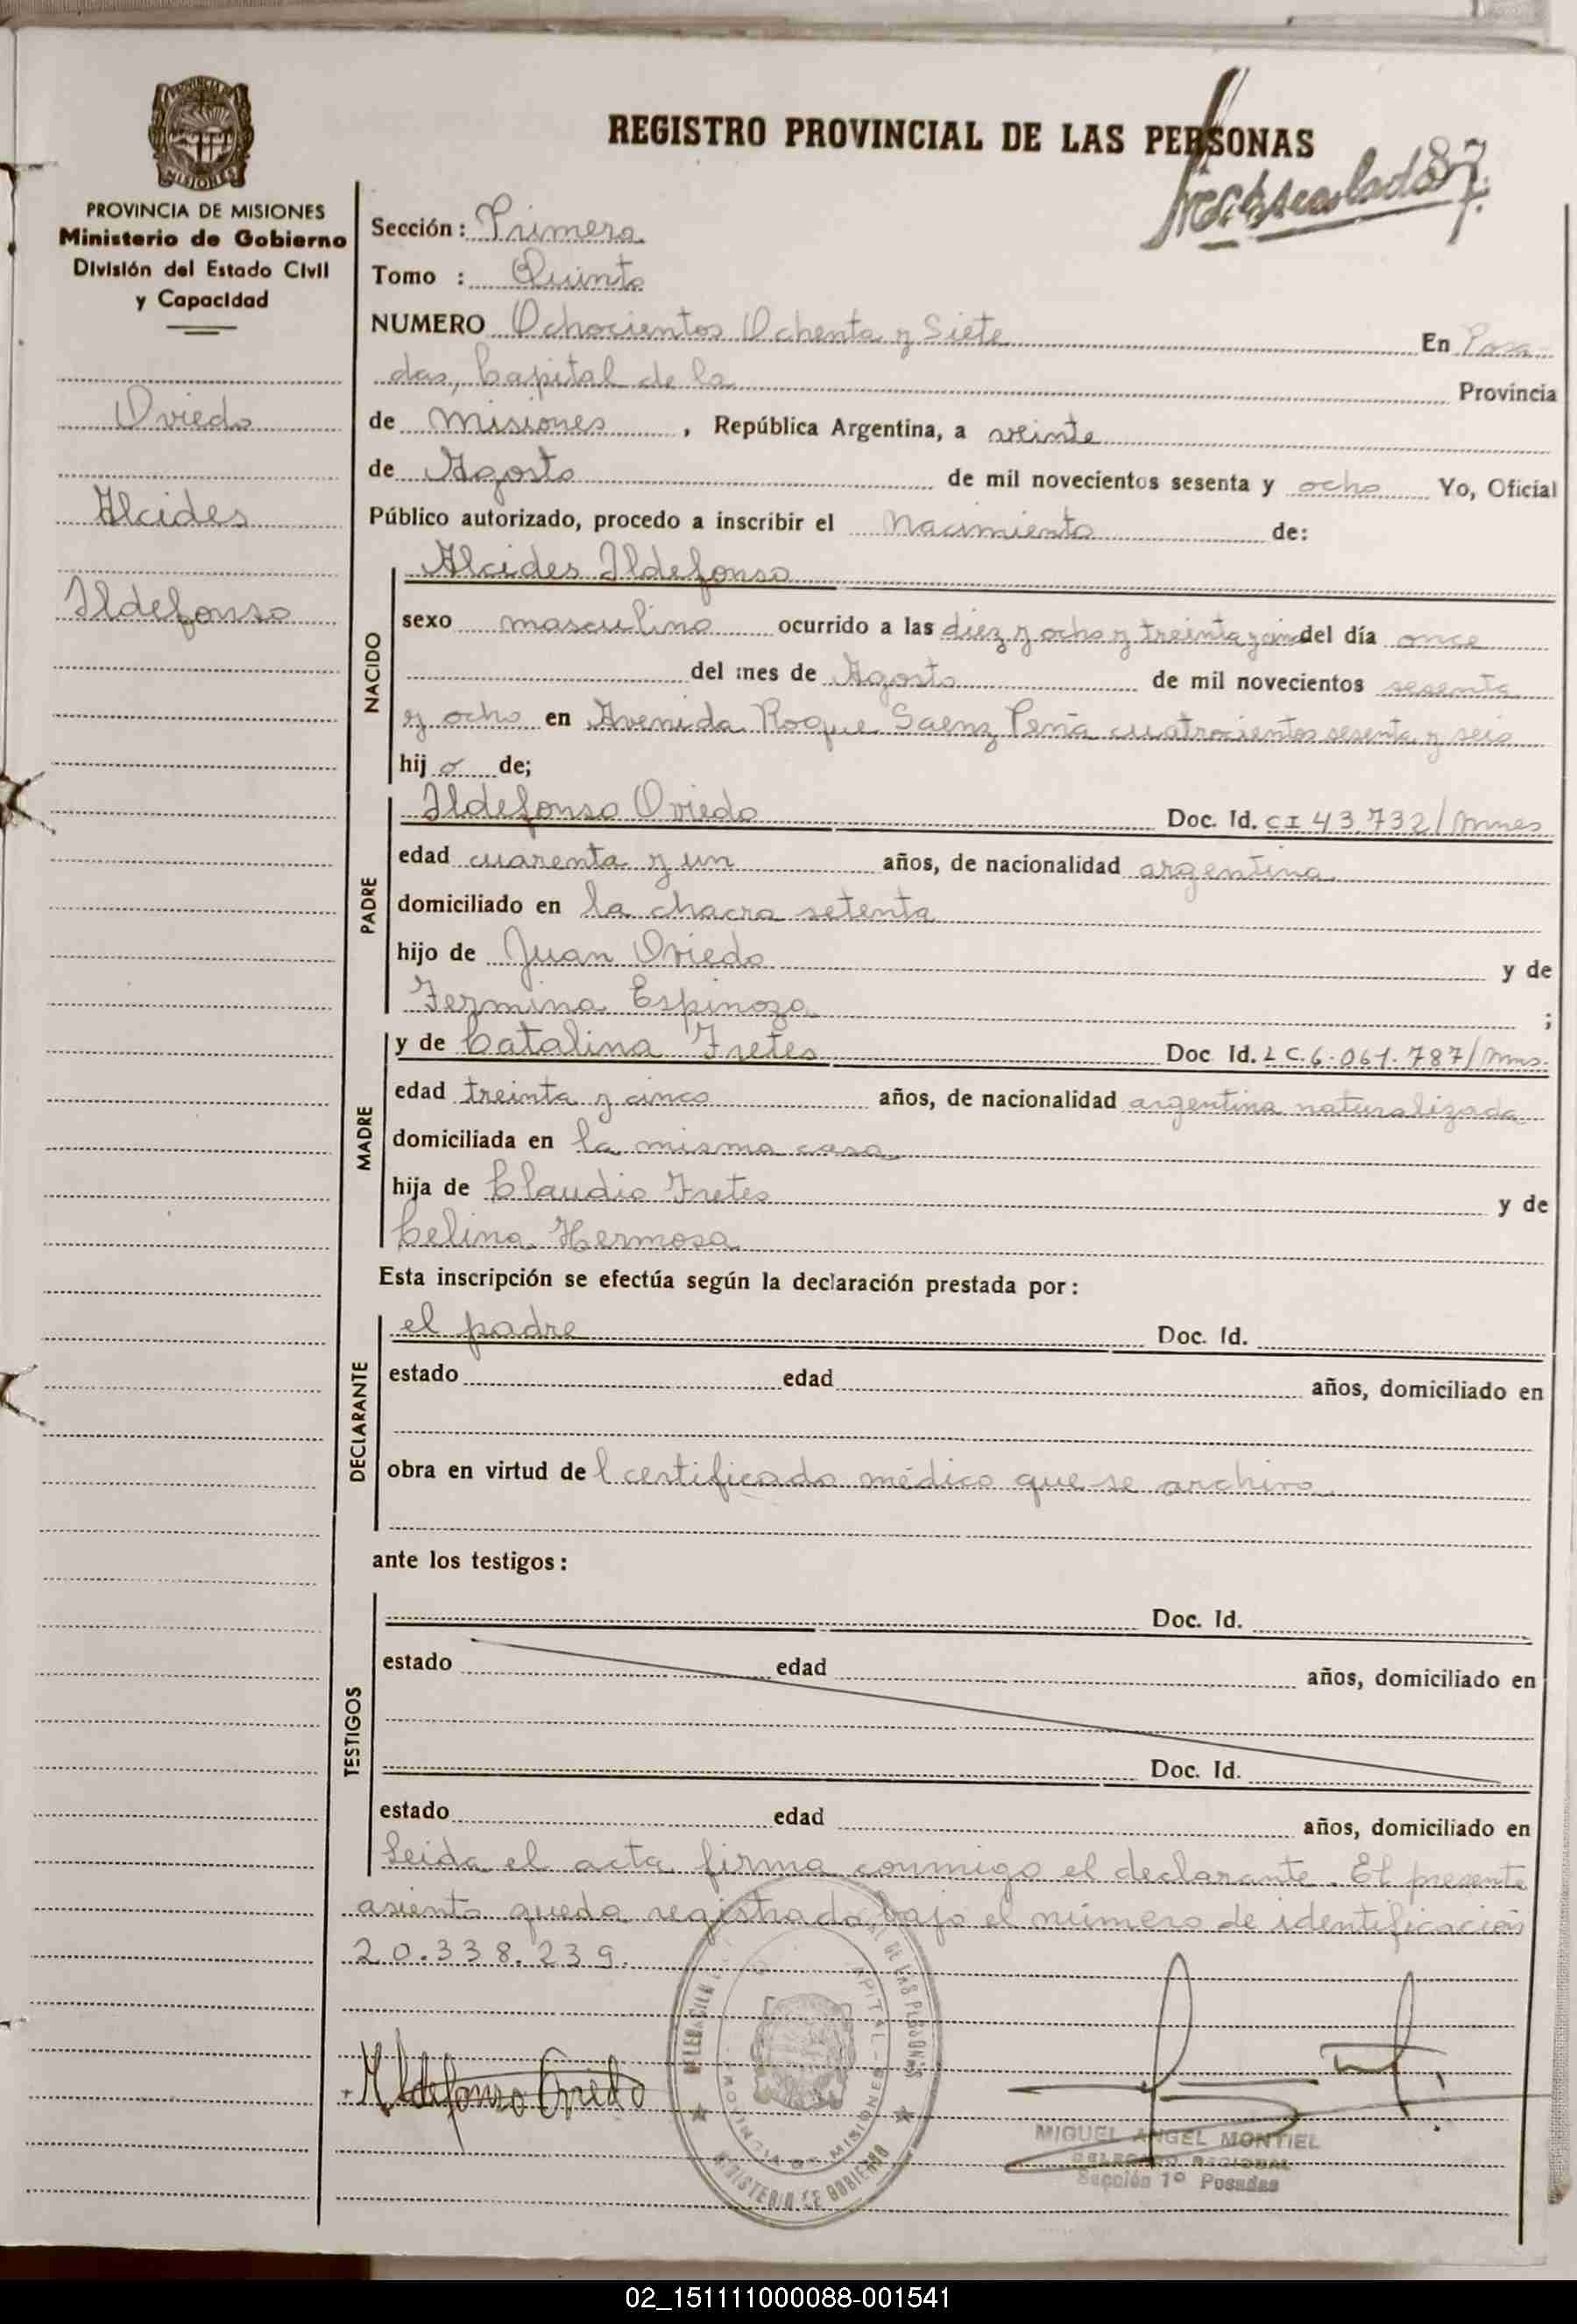 REGISTRO PROVINCIAL DE LAS PERSONAS
87
MISIONES
PROVINCIA DE MISIONES
Ministerio de Gobierno
División del Estado Civil
y Capacidad
Oviedo
Alcides
Ildefonso
Sección: Primera
Tomo : Quinto
NUMERO Ochocientos Ochenta y Siete En Posa
das, Capital de la Provincia
de Misiones, República Argentina, a veinte
de Agosto de mil novecientos sesenta y ocho Yo, Oficial
Público autorizado, procedo a inscribir el Nacimiento de:
NACIDO
Alcides Ildefonso
sexo masculino ocurrido a las diez y ocho y treinta y cin del día once
del mes de Agosto de mil novecientos sesenta
y ocho en Avenida Roque Saenz Peña cuatrocientos sesenta y seis
hij o de;
PADRE
Ildefonso Oviedo Doc. Id. CI 43.732/Mnes
edad cuarenta y un años, de nacionalidad argentina
domiciliado en la chacra setenta
hijo de Juan Oviedo y de
Fermina Espinoza ;
MADRE
y de Catalina Fretes Doc Id. L C. 6.061.787/Mns.
edad treinta y cinco años, de nacionalidad argentina naturalizada
domiciliada en la misma casa
hija de Claudio Fretes y de
Celina Hermosa
Esta inscripción se efectúa según la declaración prestada por:
DECLARANTE
el padre Doc. Id.
estado edad años, domiciliado en
obra en virtud de l certificado médico que se archiva
ante los testigos:
TESTIGOS
Doc. Id.
estado edad años, domiciliado en
Doc. Id.
estado edad años, domiciliado en
Leida el acta firma conmigo el declarante. El presente
asiento queda registrado bajo el número de identificación
20.338.239.
Ildefonso Oviedo
DE LAS PERSONAS
CAPITAL - MISIONES
PROVINCIA DE MISIONES
MINISTERIO DE GOBIERNO
MIGUEL ANGEL MONTIEL
DELEGADO REGIONAL
Sección 1º Posadas
02_151111000088-001541